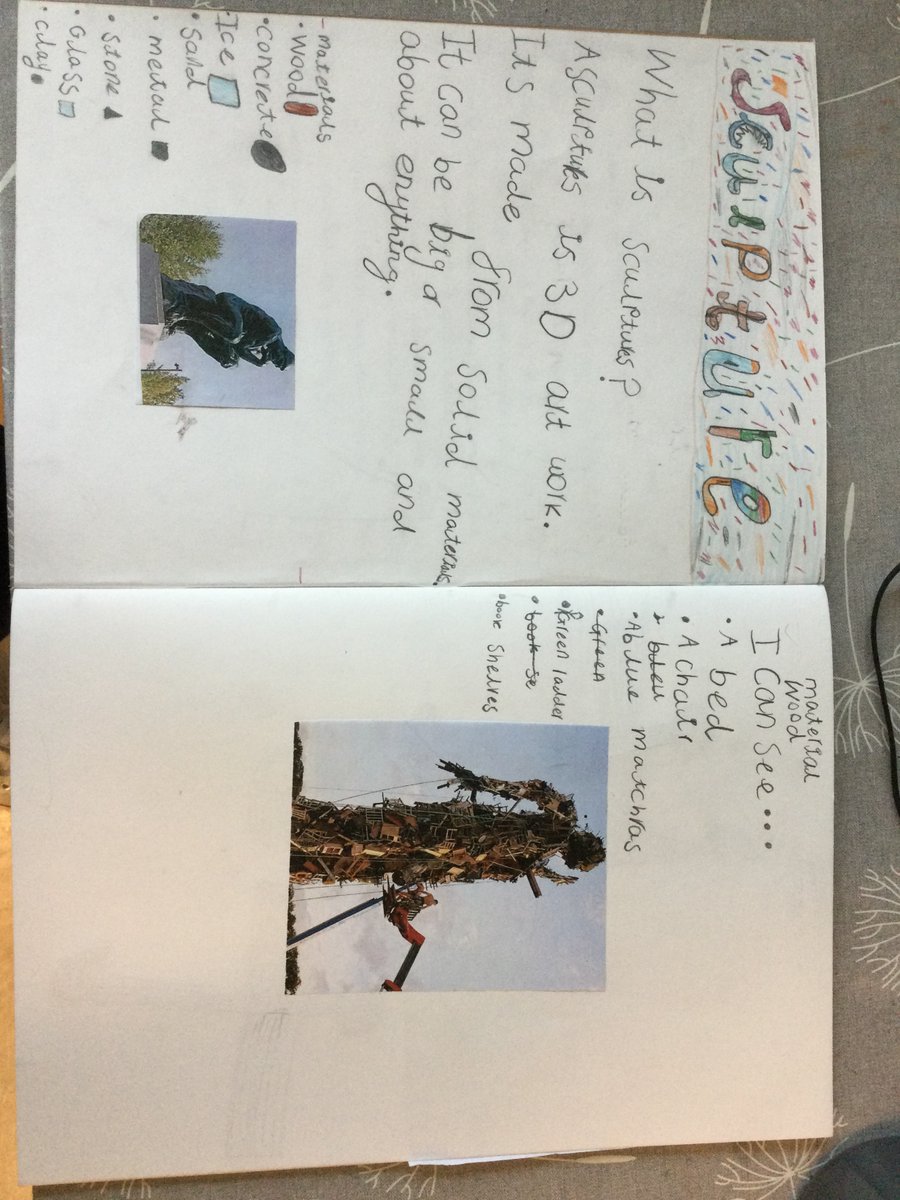 Sculpture
What is sculptures?
A sculptures is 3D art work.
Its made from solid materials.
It can be big or small and
about enything.
materials
• Wood
• concrete
• Ice
• Sand
• metal
• Stone
• Glass
• clay
material
wood
I can see...
• A bed
• A chair
• blue
• A blue matchras
• Green
• Green ladder
• book se
• book Shelves